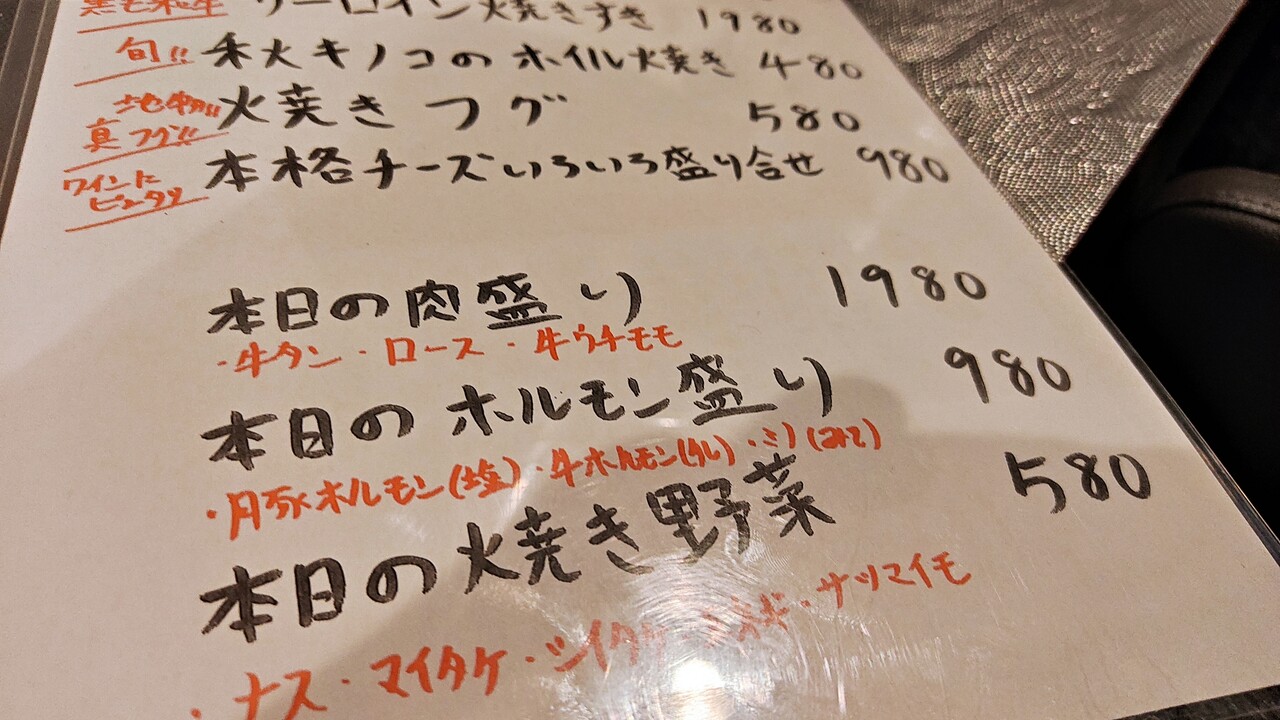 黒毛和牛 サーロイン焼きすき 1980
旬!! 秋キノコのホイル焼き 480
地物!! 真フグ!! 焼きフグ 580
ワインにピッタリ 本格チーズいろいろ盛り合せ 980
本日の肉盛り 1980
・牛タン・ロース・牛ウチモモ
本日のホルモン盛り 980
・豚ホルモン(塩)・牛ホルモン(タレ)・ミノ(みそ)
本日の焼き野菜 580
・ナス・マイタケ・シイタケ ・サツマイモ